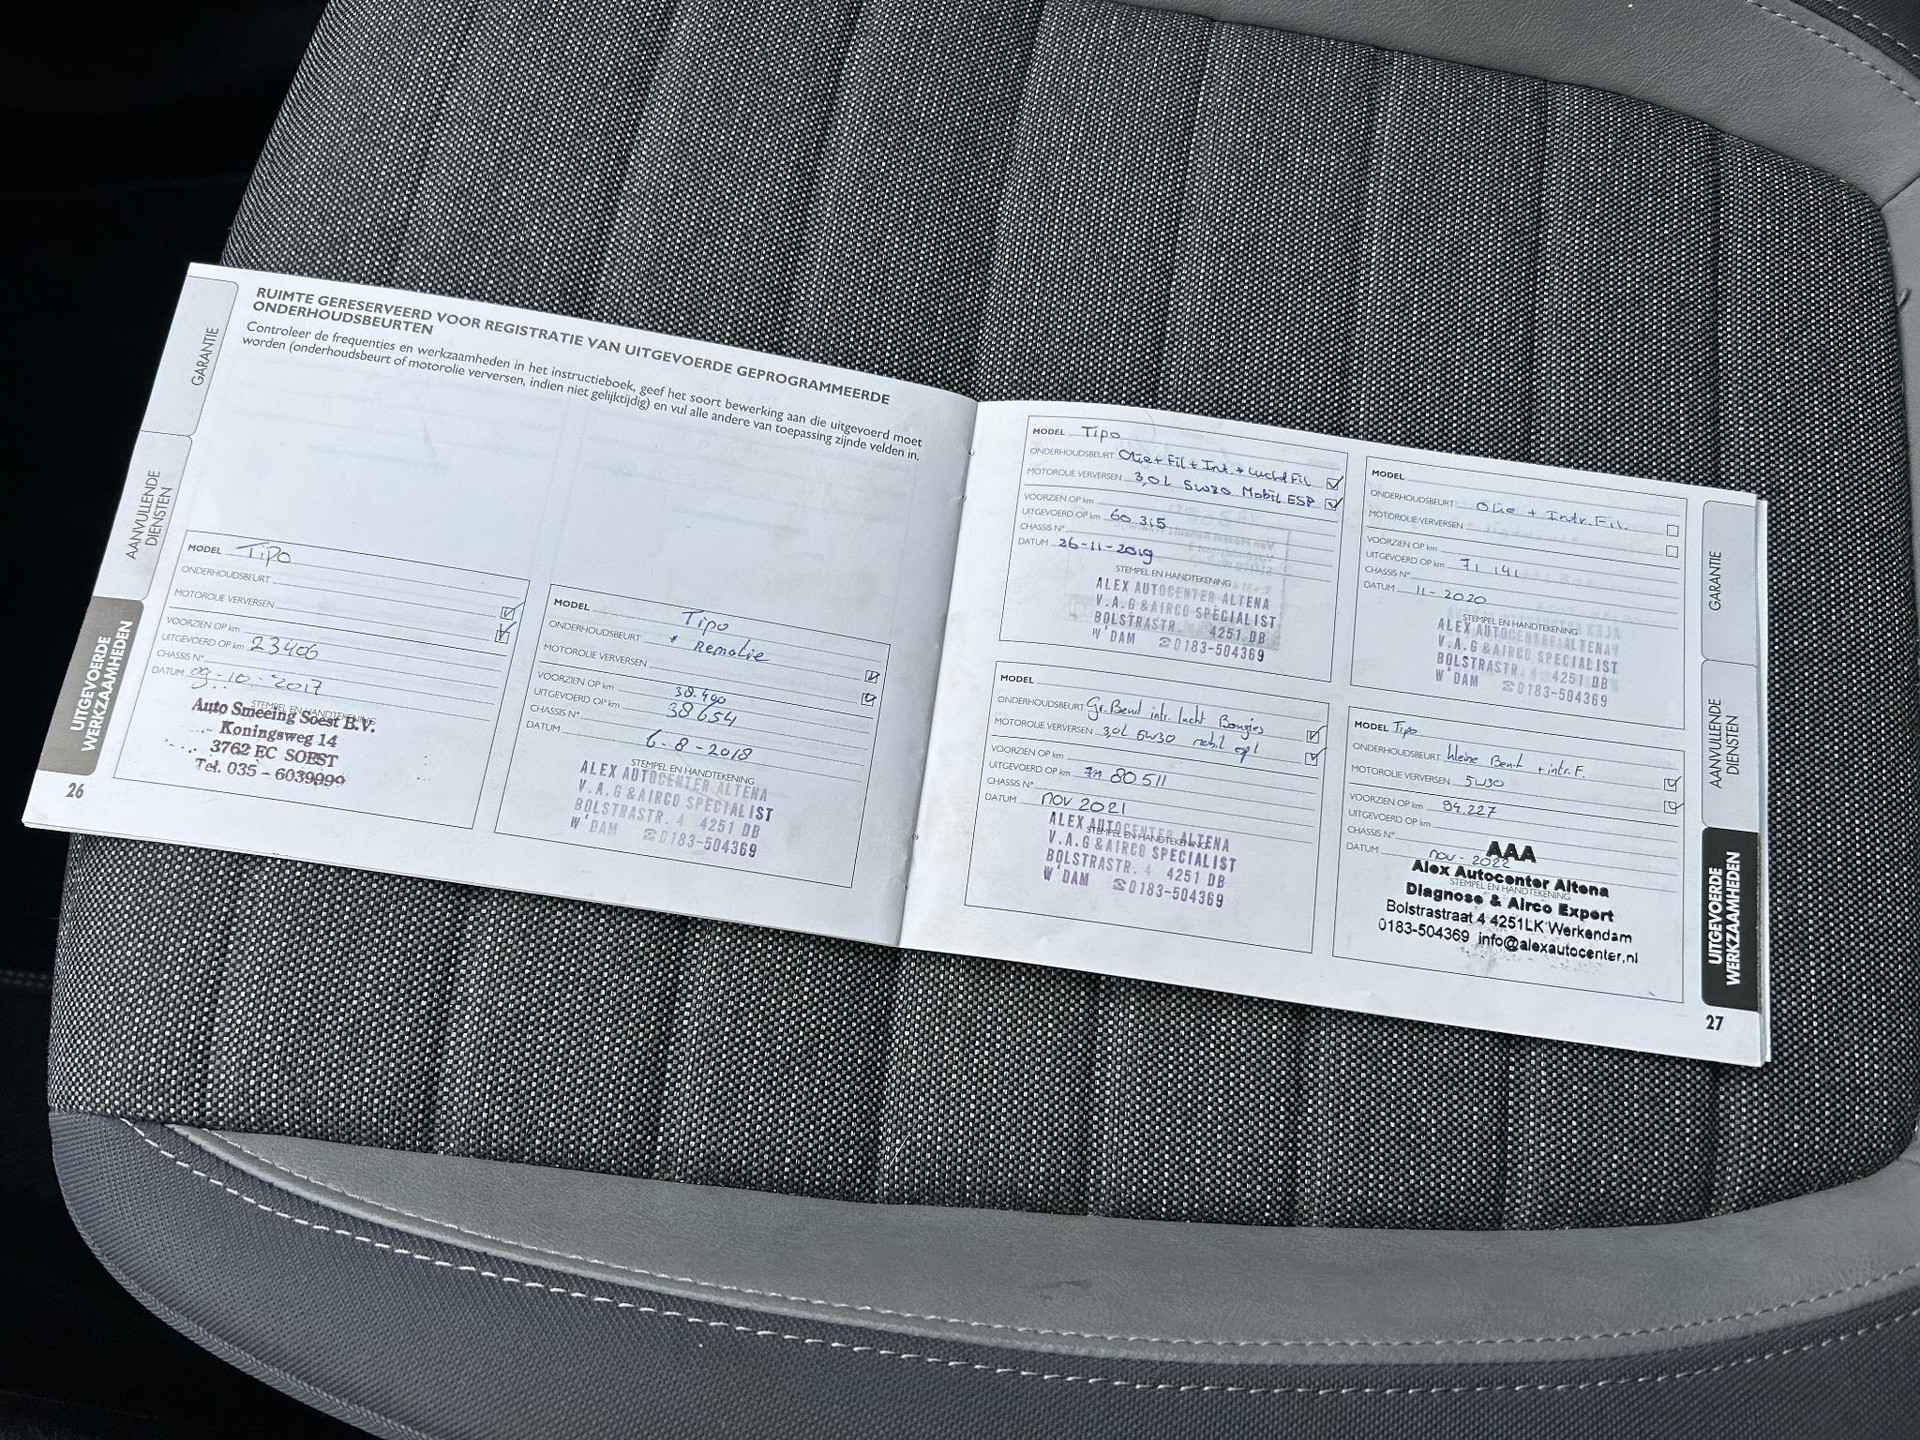 GARANTIE
AANVULLENDE
DIENSTEN
UITGEVOERDE
WERKZAAMHEDEN
26
RUIMTE GERESERVEERD VOOR REGISTRATIE VAN UITGEVOERDE GEPROGRAMMEERDE
ONDERHOUDSBEURTEN
Controleer de frequenties en werkzaamheden in het instructieboek, geef het soort bewerking aan die uitgevoerd moet
worden (onderhoudsbeurt of motorolie verversen, indien niet gelijktijdig) en vul alle andere van toepassing zijnde velden in.
MODEL Tipo
ONDERHOUDSBEURT
MOTOROLIE VERVERSEN
VOORZIEN OP km
UITGEVOERD OP km 23406
CHASSIS N°
DATUM 09-10-2017
STEMPEL EN HANDTEKENING
Auto Smeeing Soest B.V.
Koningsweg 14
3762 EC SOEST
Tel. 035 - 6039999
MODEL Tipo
ONDERHOUDSBEURT + Remolie
MOTOROLIE VERVERSEN
VOORZIEN OP km 38.490
UITGEVOERD OP km 38654
CHASSIS N°
DATUM 6-8-2018
STEMPEL EN HANDTEKENING
ALEX AUTOCENTER ALTENA
V.A.G & AIRCO SPECIALIST
BOLSTRASTR. 4 4251 DB
W'DAM ☎0183-504369
MODEL Tipo
ONDERHOUDSBEURT Olie + Fil + Int. + Lucht Fil
MOTOROLIE VERVERSEN 3,0 L 5W30 Mobil ESP
VOORZIEN OP km
UITGEVOERD OP km 60 315
CHASSIS N°
DATUM 26-11-2019
STEMPEL EN HANDTEKENING
ALEX AUTOCENTER ALTENA
V.A.G & AIRCO SPECIALIST
BOLSTRASTR. 4251 DB
W'DAM ☎0183-504369
MODEL
ONDERHOUDSBEURT Olie + Intr. Fil.
MOTOROLIE VERVERSEN
VOORZIEN OP km
UITGEVOERD OP km 71 141
CHASSIS N°
DATUM 11-2020
STEMPEL EN HANDTEKENING
ALEX AUTOCENTER ALTENA
V.A.G & AIRCO SPECIALIST
BOLSTRASTR. 4 4251 DB
W'DAM ☎0183-504369
MODEL
ONDERHOUDSBEURT Gr. Beurt intr. lucht Bougies
MOTOROLIE VERVERSEN 3,0L 5W30 mobil
VOORZIEN OP km
UITGEVOERD OP km 80511
CHASSIS N°
DATUM nov 2021
STEMPEL EN HANDTEKENING
ALEX AUTOCENTER ALTENA
V.A.G & AIRCO SPECIALIST
BOLSTRASTR. 4 4251 DB
W'DAM ☎0183-504369
MODEL Tipo
ONDERHOUDSBEURT kleine Beurt + intr. F.
MOTOROLIE VERVERSEN 5W30
VOORZIEN OP km 94.227
UITGEVOERD OP km
CHASSIS N°
DATUM nov - 2022
AAA
Alex Autocenter Altena
STEMPEL EN HANDTEKENING
Diagnose & Airco Expert
Bolstrastraat 4 4251LK Werkendam
0183-504369 info@alexautocenter.nl
GARANTIE
AANVULLENDE
DIENSTEN
UITGEVOERDE
WERKZAAMHEDEN
27